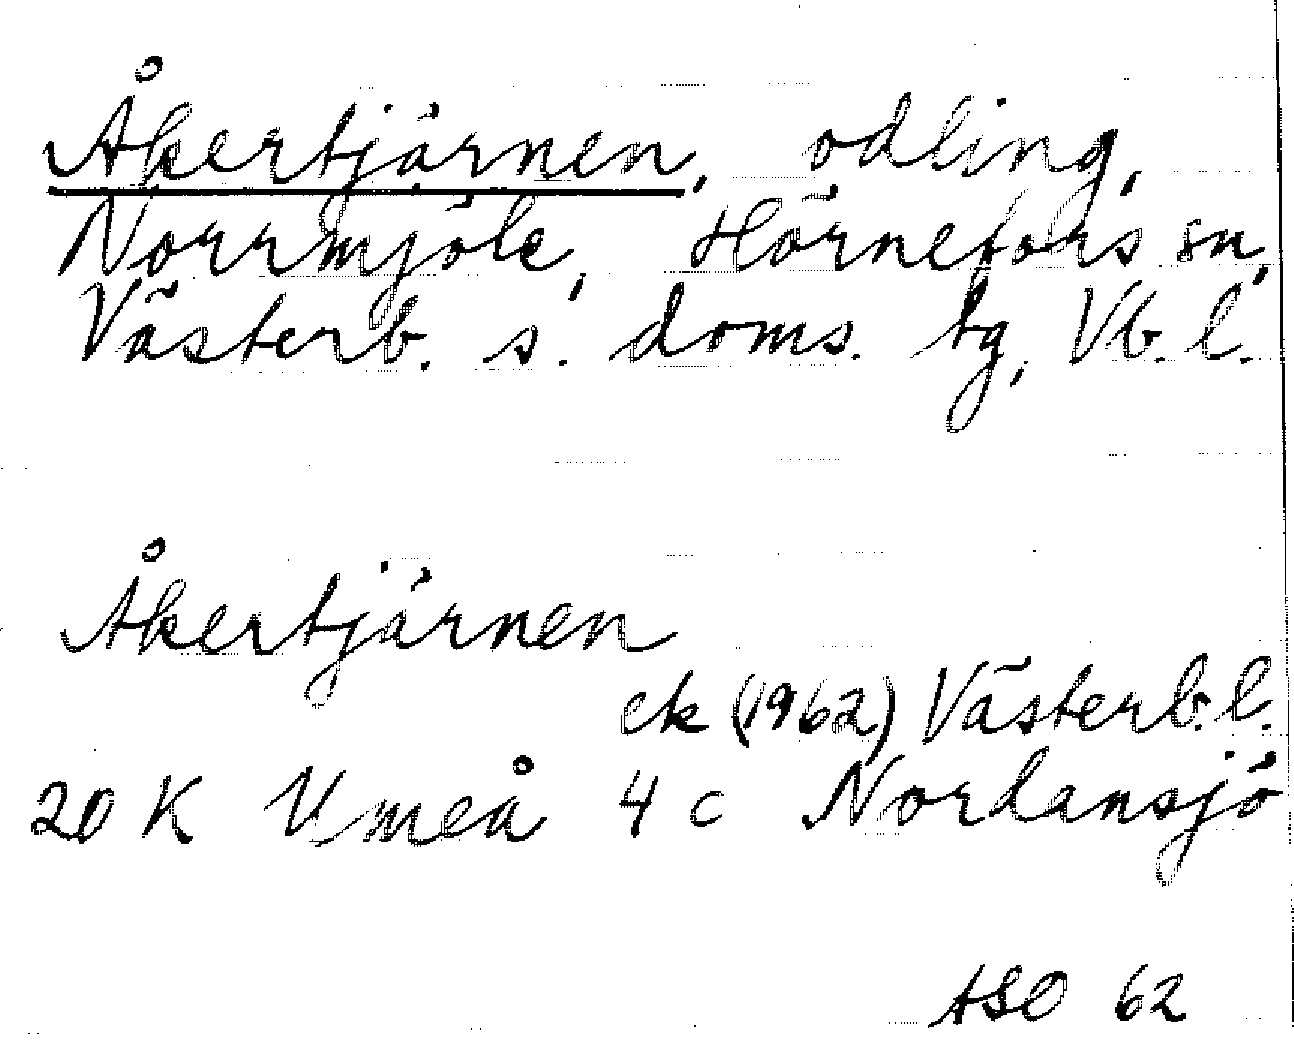 Åkertjärnen, odling,
Norrmjöle, Hörnefors sn,
Västerb. s. doms. tg, Vb. l.
Åkertjärnen
ek (1962) Västerb. l.
20 K Umeå 4 c Nordansjö
ASO 62